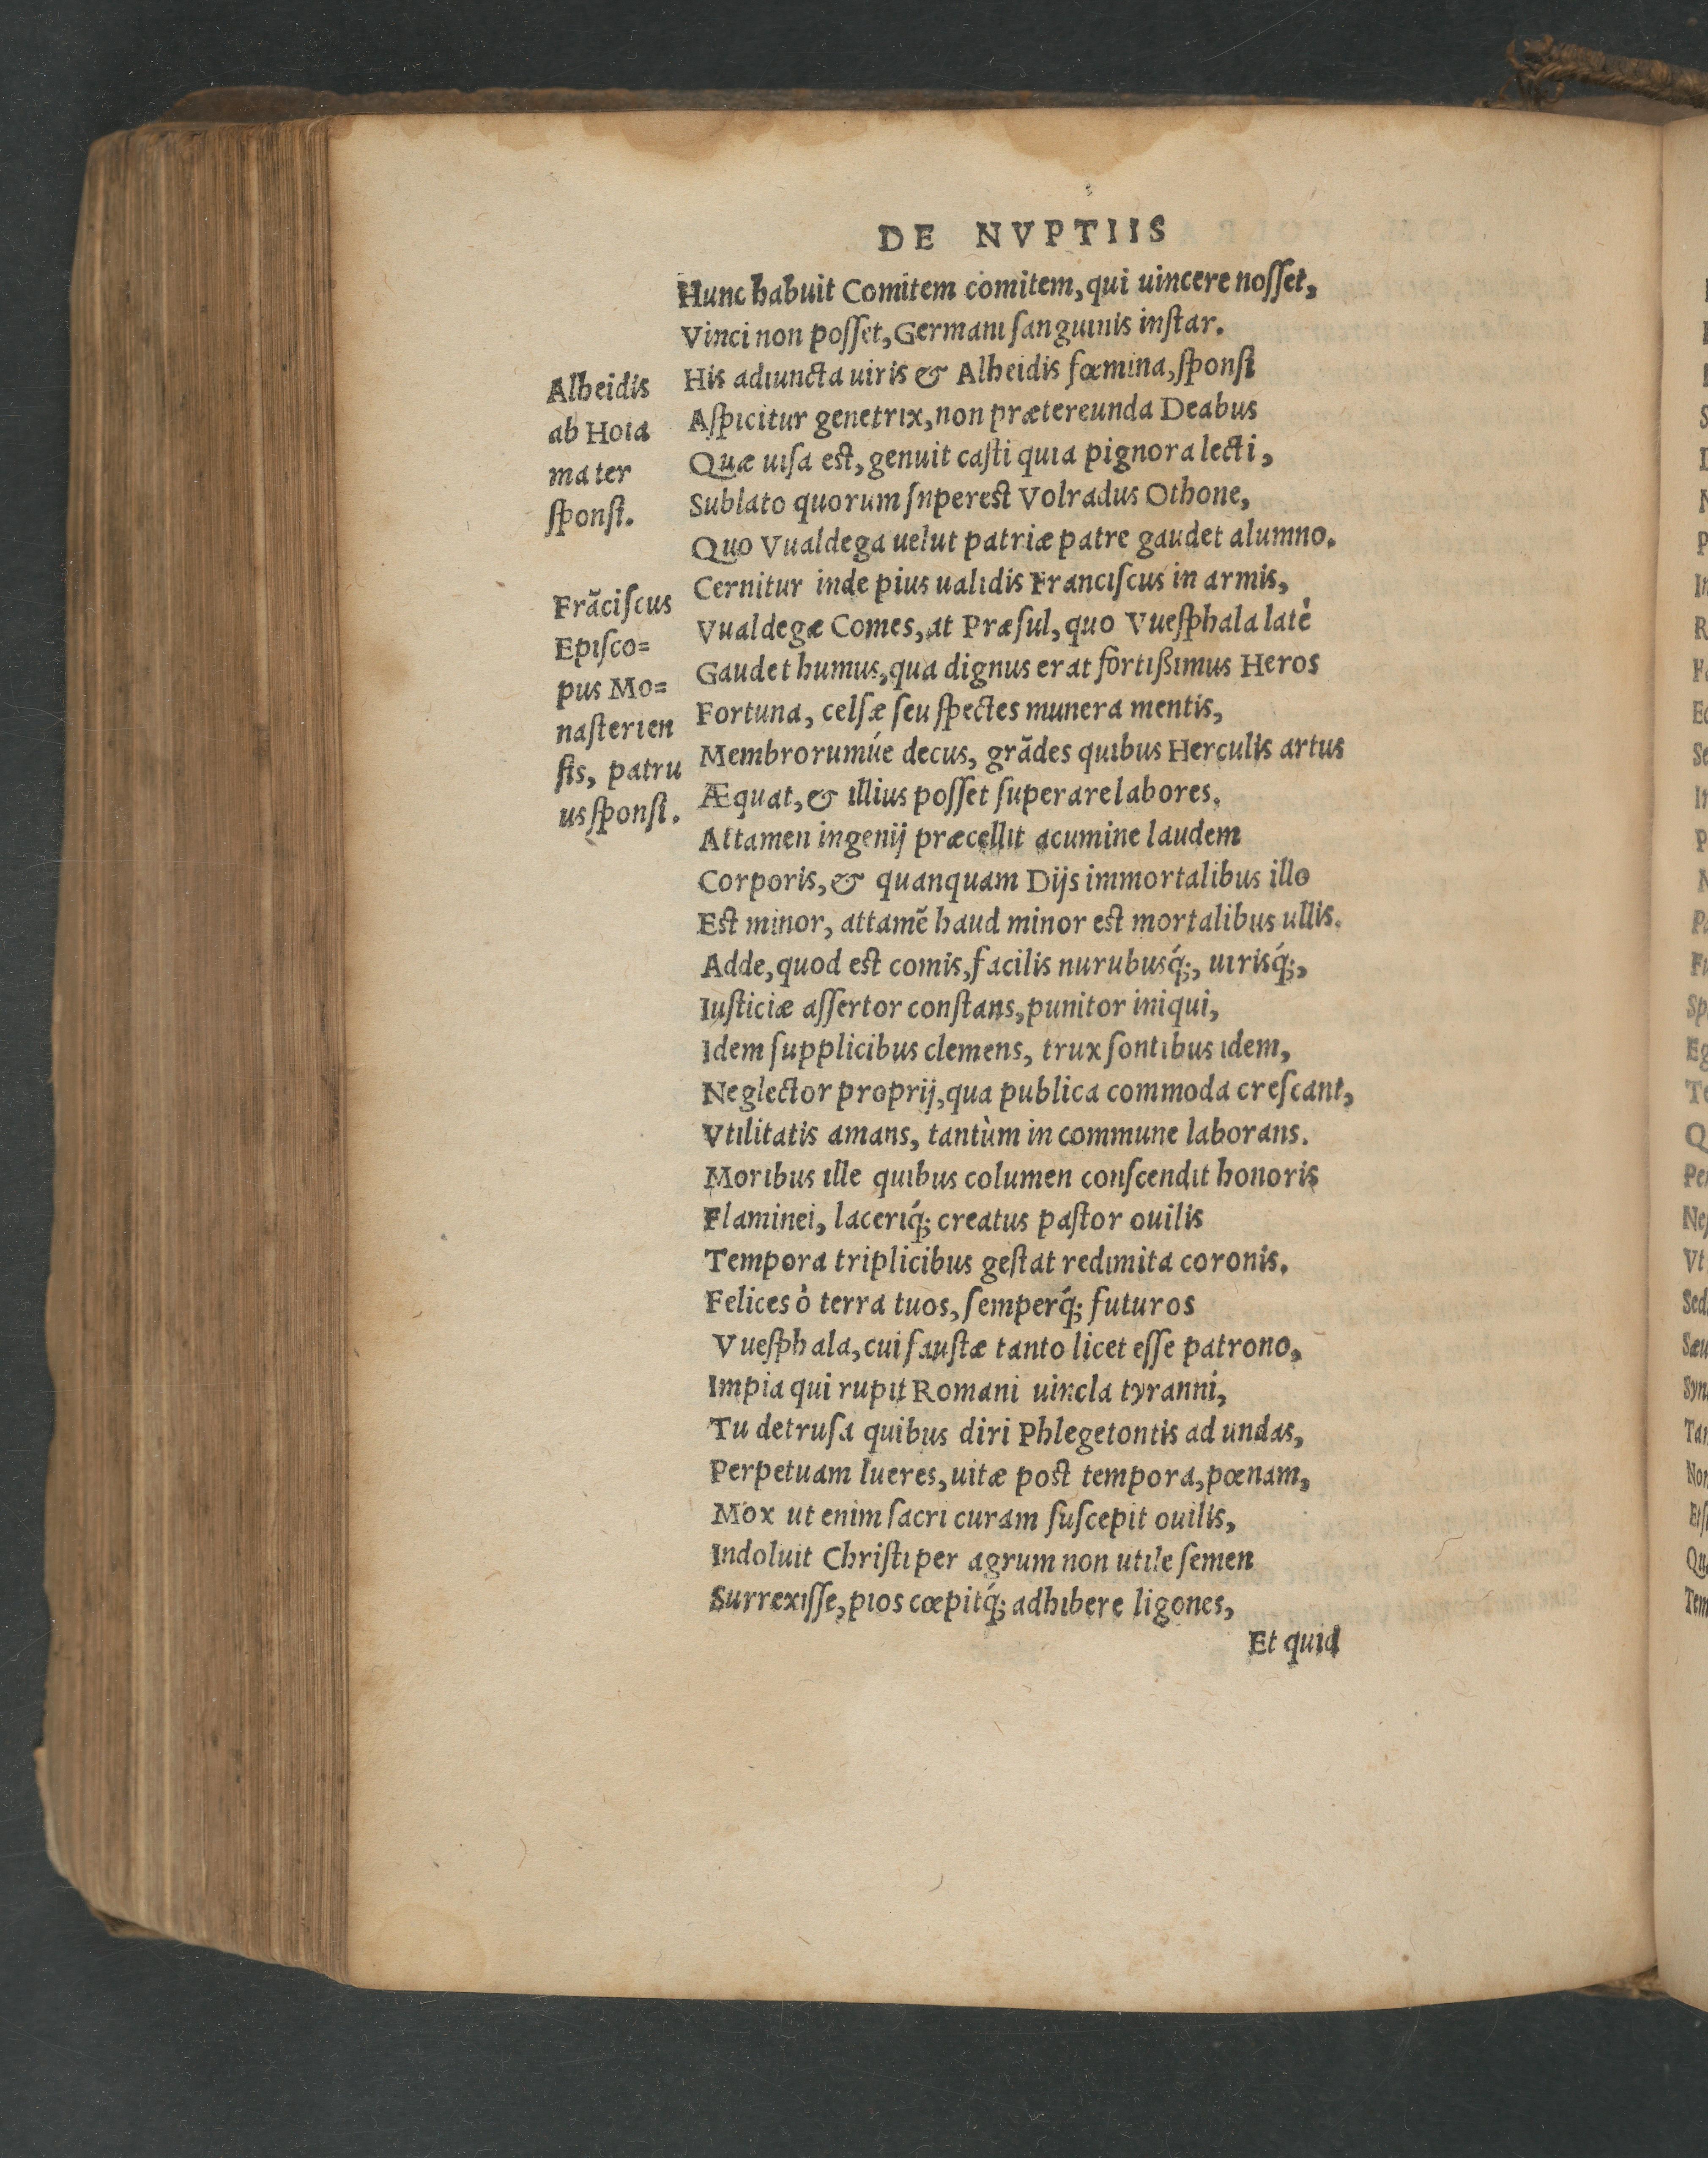 DE NVPTIIS
Hunc habuit Comitem comitem, qui uincere noſſet,
Vinci non poſſet, Germani ſanguinis inſtar.
His adiuncta uiris & Alheidis fœmina, ſponſi
Aſpicitur genetrix, non prætereunda Deabus
Quæ uiſa eſt, genuit caſti quia pignora lecti,
Sublato quorum ſnpereſt Volradus Othone,
Quo Vualdega uelut patriæ patre gaudet alumno.
Cernitur inde pius ualidis Franciſcus in armis,
Vualdegæ Comes, at Præſul, quo Vueſphala latè
Gaudet humus, qua dignus erat fortißimus Heros
Fortuna, celſæ ſeu ſpectes munera mentis,
Membrorumúe decus, grãdes quibus Herculis artus
Æquat, & illius poſſet ſuperare labores.
Attamen ingenij præcellit acumine laudem
Corporis, & quanquam Dijs immortalibus illo
Eſt minor, attamẽ haud minor eſt mortalibus ullis.
Adde, quod eſt comis, facilis nurubusq́;, uirisq́;,
Iuſticiæ aſſertor conſtans, punitor iniqui,
Idem ſupplicibus clemens, trux ſontibus idem,
Neglector proprij, qua publica commoda creſcant,
Vtilitatis amans, tantùm in commune laborans.
Moribus ille quibus columen conſcendit honoris
Flaminei, laceriq́; creatus paſtor ouilis
Tempora triplicibus geſtat redimita coronis.
Felices ò terra tuos, ſemperq́; futuros
Vueſphala, cui fauſtæ tanto licet eſſe patrono,
Impia qui rupit Romani uincla tyranni,
Tu detruſa quibus diri Phlegetontis ad undas,
Perpetuam lueres, uitæ poſt tempora, pœnam,
Mox ut enim ſacri curam ſuſcepit ouilis,
Indoluit Chriſti per agrum non utile ſemen
Surrexiſſe, pios cœpitq́; adhibere ligones,
Et quid
Alheidis
ab Hoia
mater
ſponſi.
Frãciſcus
Epiſco=
pus Mo=
naſterien
ſis, patru
us ſponſi.